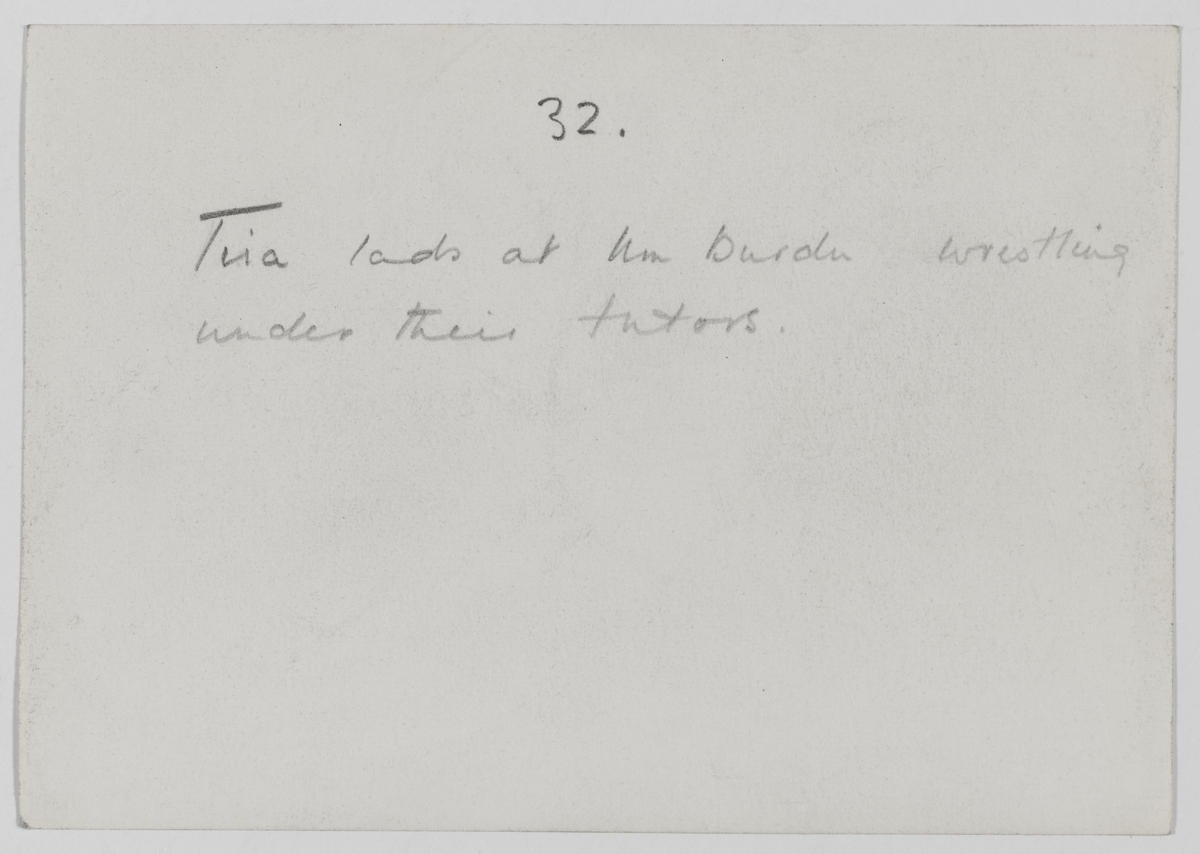 32.
Tira lads at Um Durdu wrestling
under their tutors.